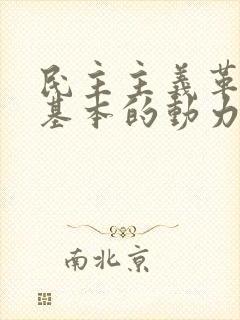 民主主義革
基本的動力
南北京